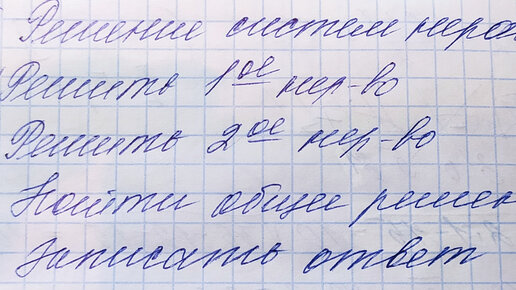 Решение систем нера
Решить 1ое нер-во
Решить 2ое нер-во
Найти общее решен
Записать ответ